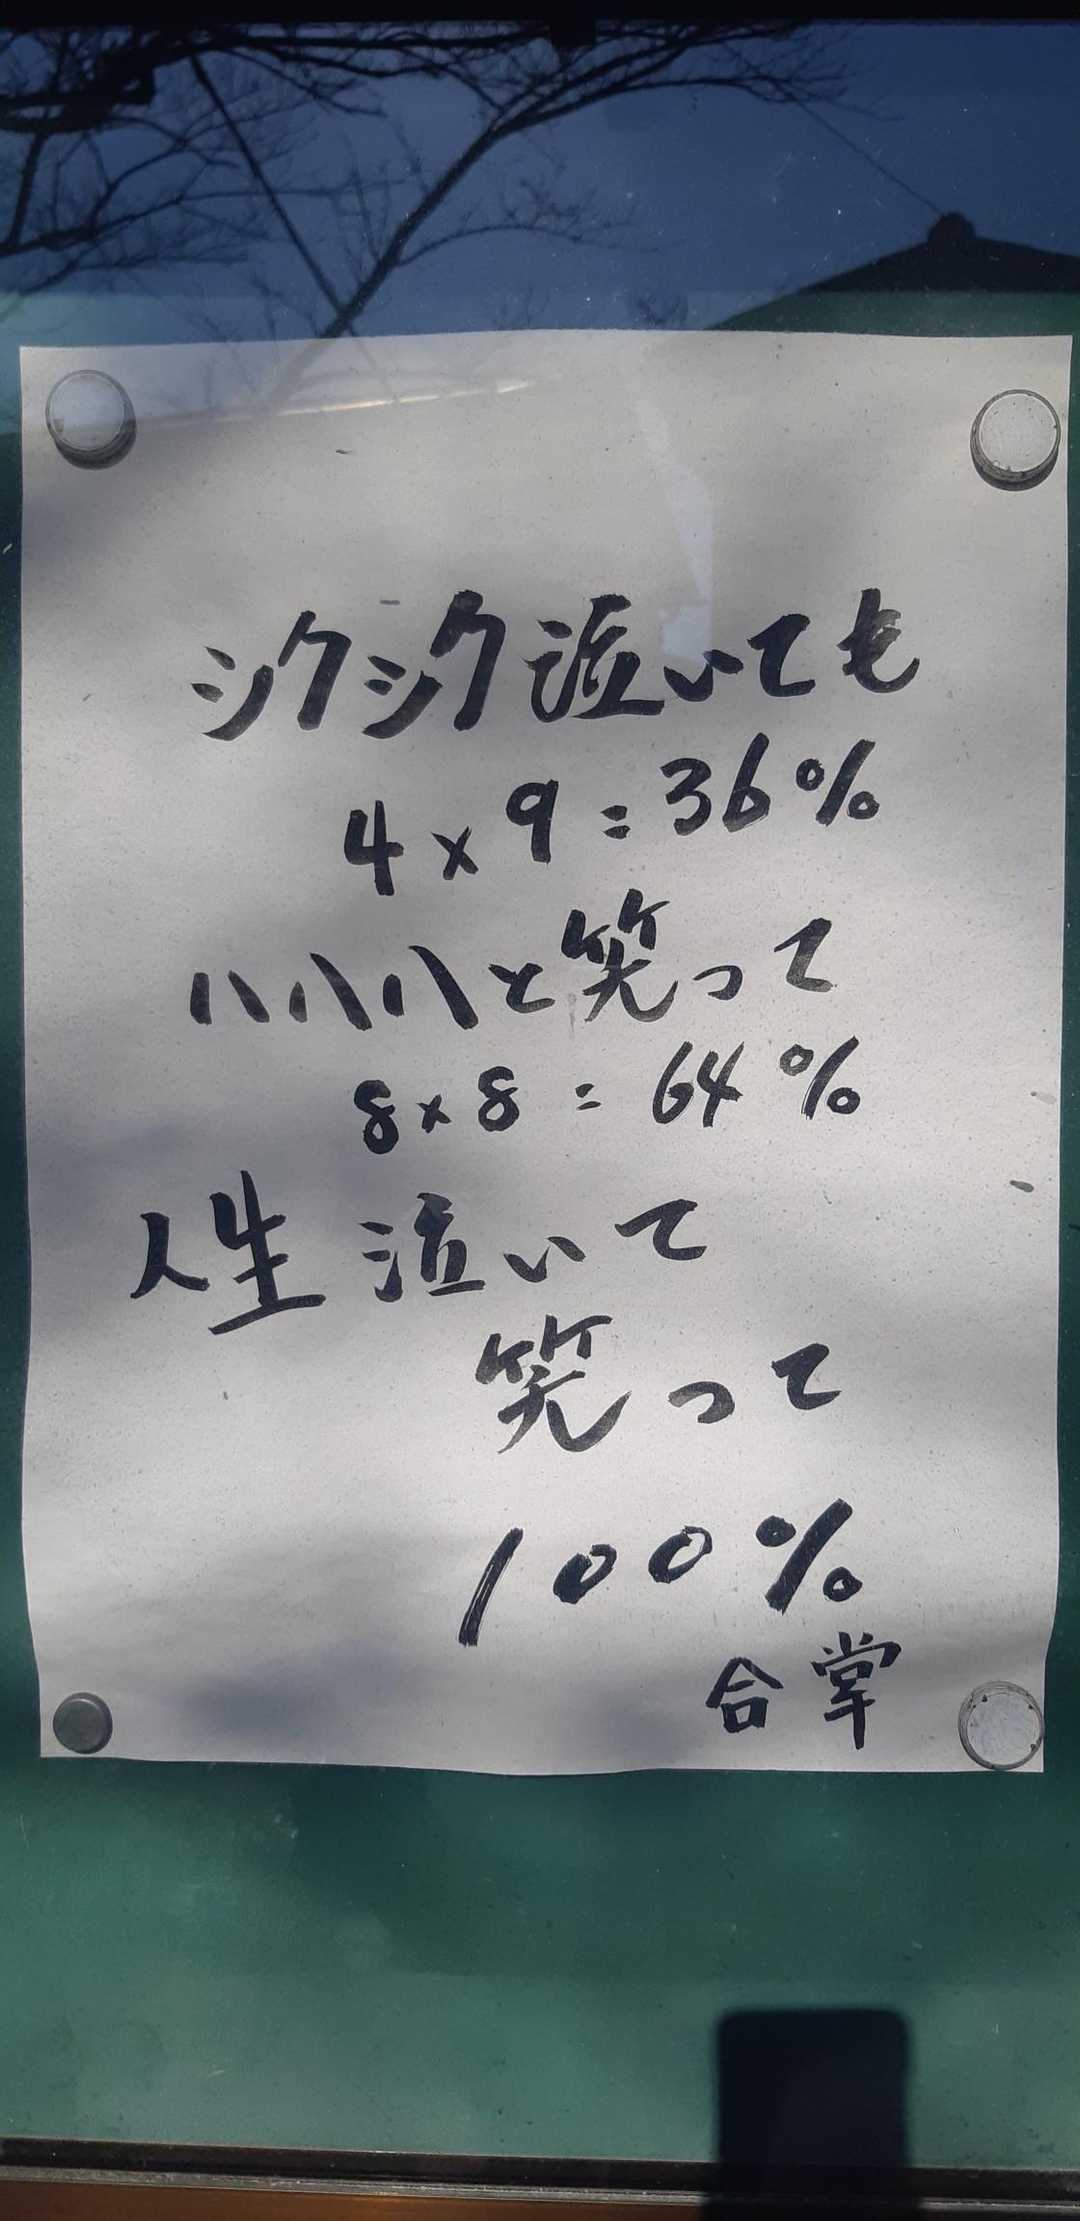 シクシク泣いても
4×9=36%
ハハハと笑って
8×8=64%
人生 泣いて
笑って
100%
合掌